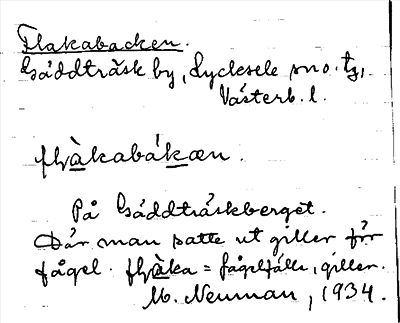 Flakabacken.
Gäddträsk by, Lycksele sno. tg,
Västerb. l.
flàkabákæn.
På Gäddträskberget.
Där man satte ut giller för
fågel. flàka = fågelfälla, giller.
M. Neuman, 1934.